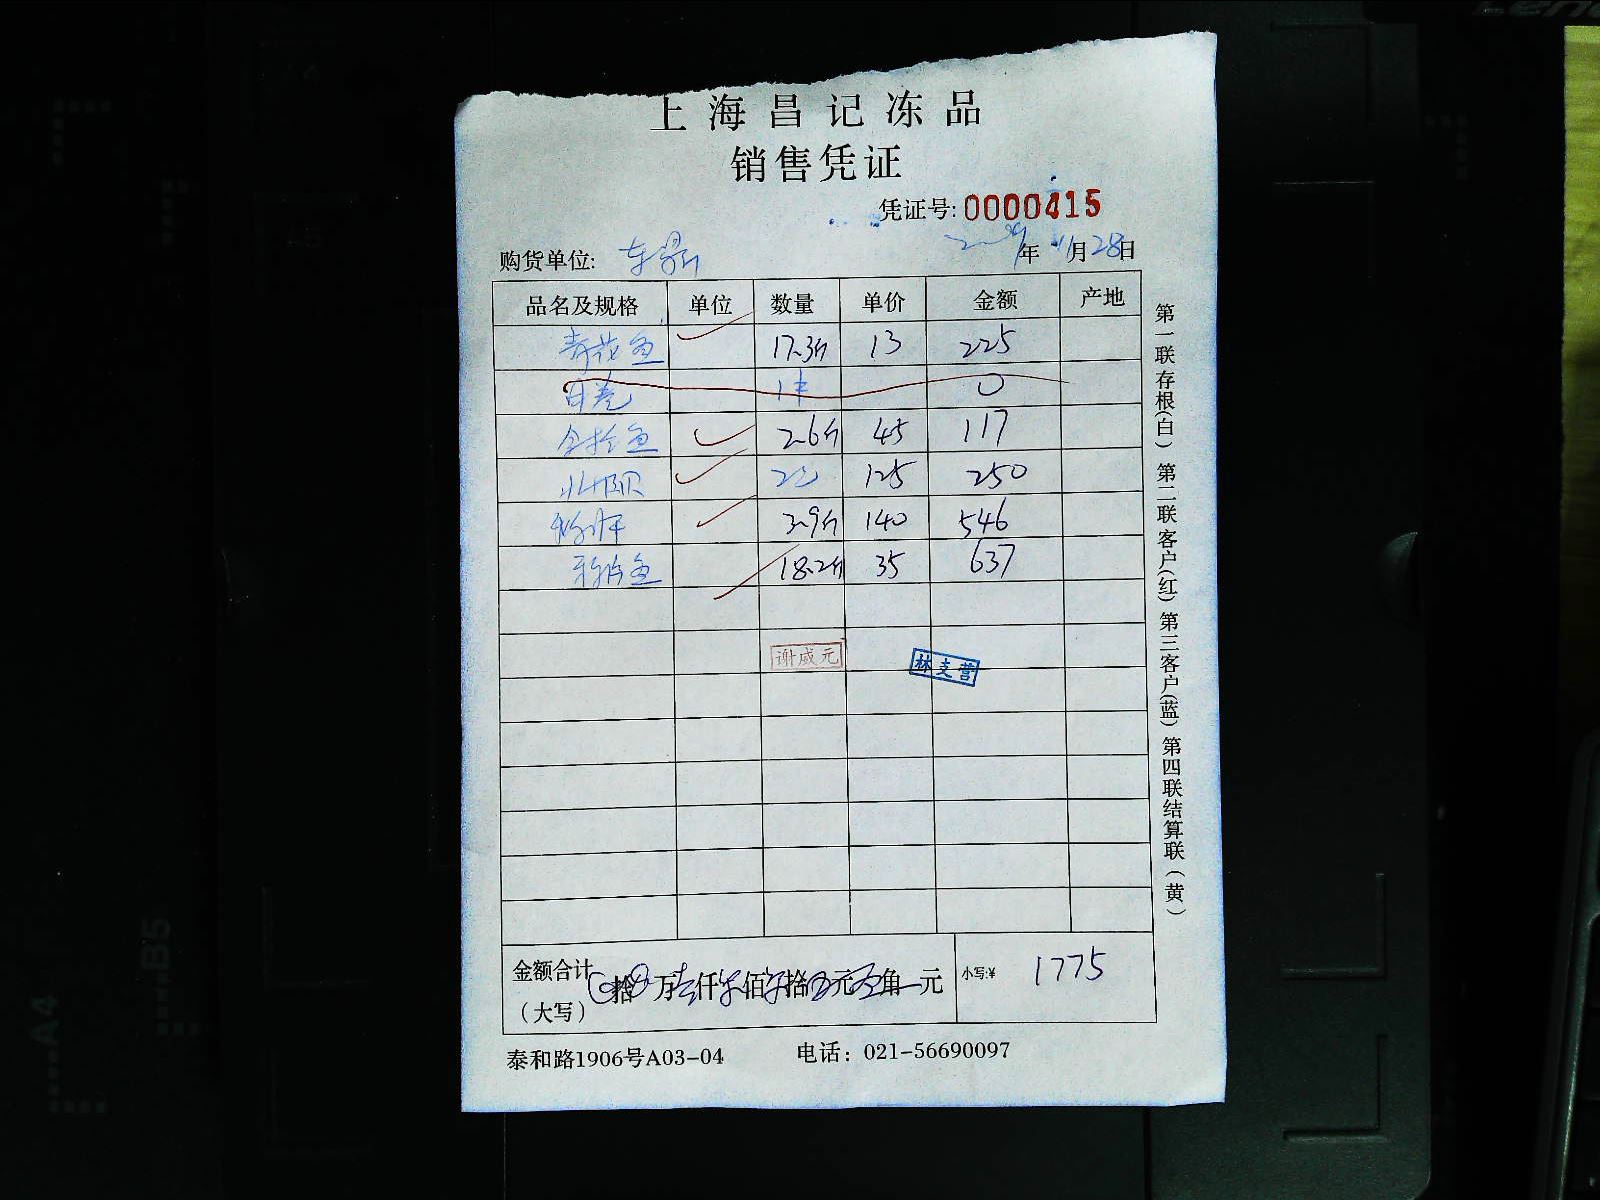 上海昌记冻品
销售凭证
凭证号: 0000415
购货单位: 东鼎 年 11月28日
品名及规格 单位 数量 单价 金额 产地
青花鱼 17.3斤 13 225
0
2.6斤 45 117
125 250
3.9斤 140 546
鱼 18.2斤 35 637
谢成元 林支营
金额合计 拾 万 壹仟柒佰柒拾伍元 角 元 小写:¥ 1775
(大写)
泰和路1906号A03-04 电话: 021-56690097
第一联存根(白) 第二联客户(红) 第三客户(蓝) 第四联结算联(黄)